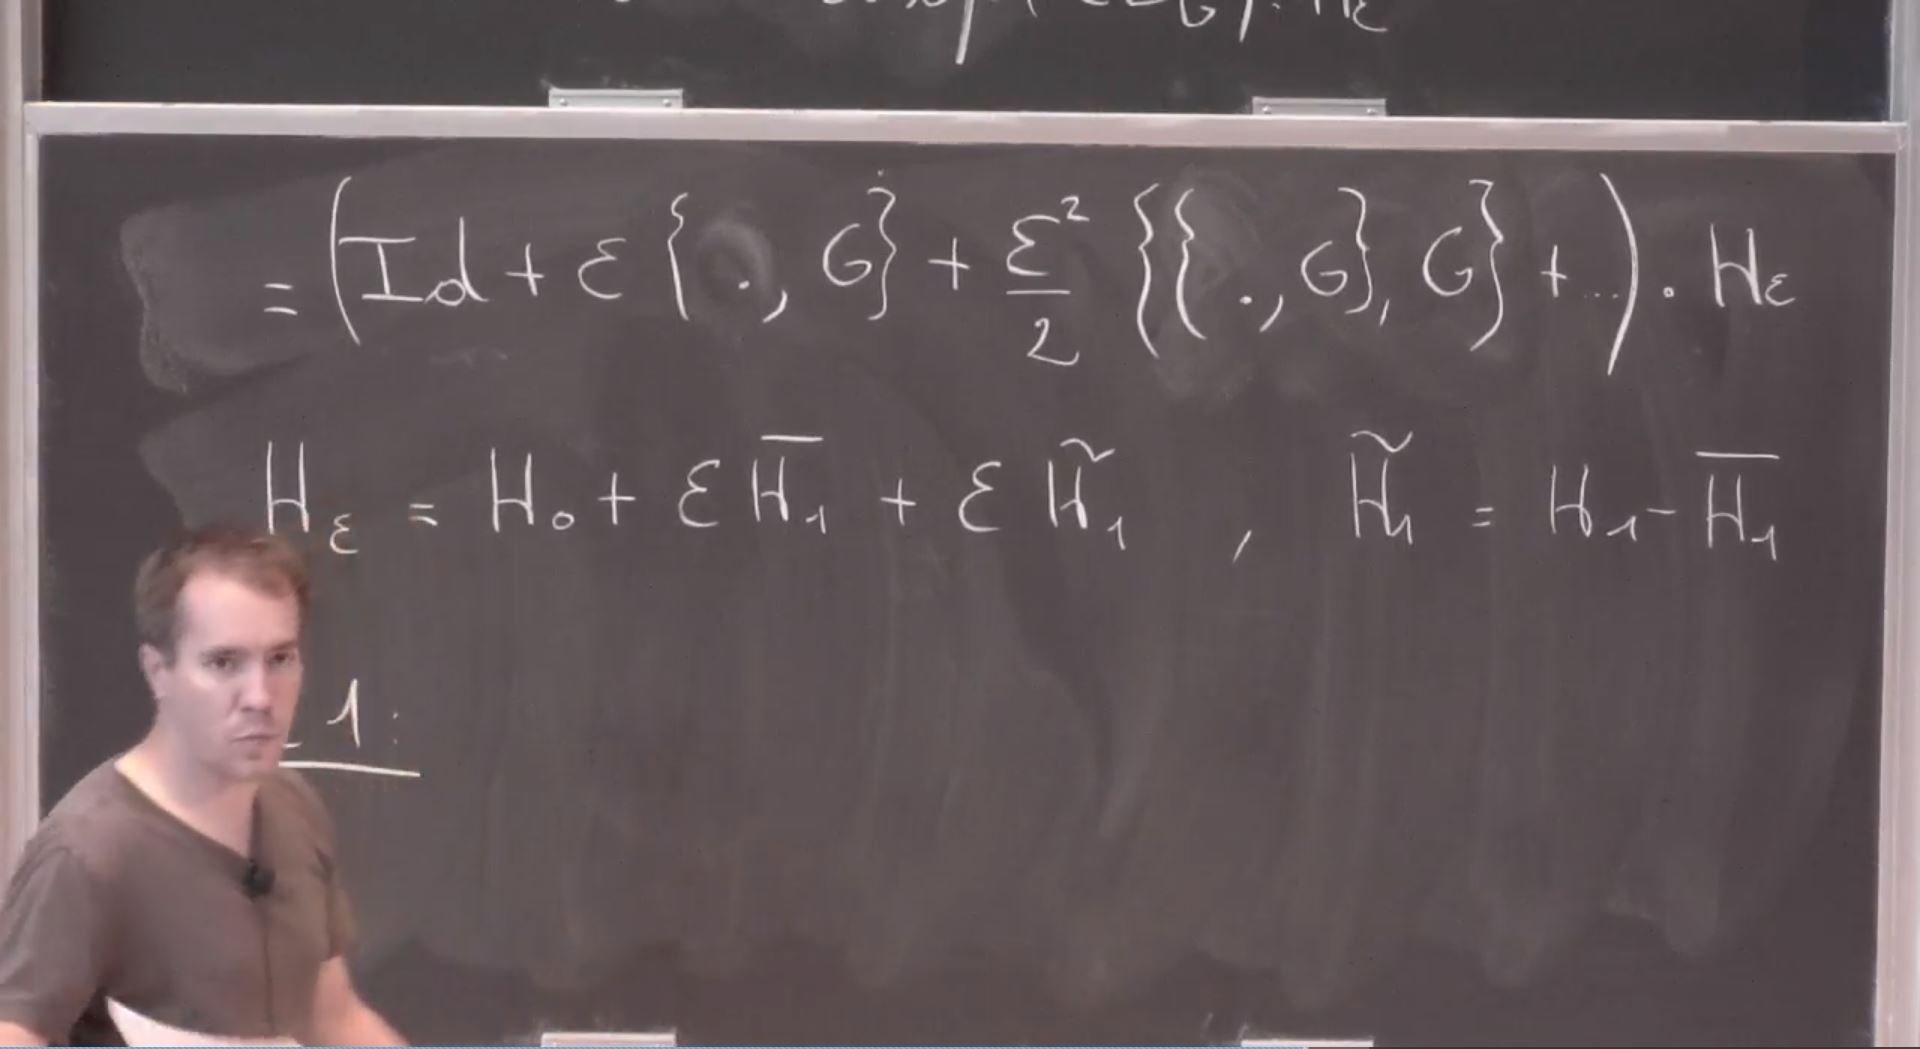 = (Id + ε {., G} + ε²/2 {{., G}, G} + ...) . H_ε
H_ε = H₀ + ε H̅₁ + ε H̃₁ , H̃₁ = H₁ - H̅₁
1: